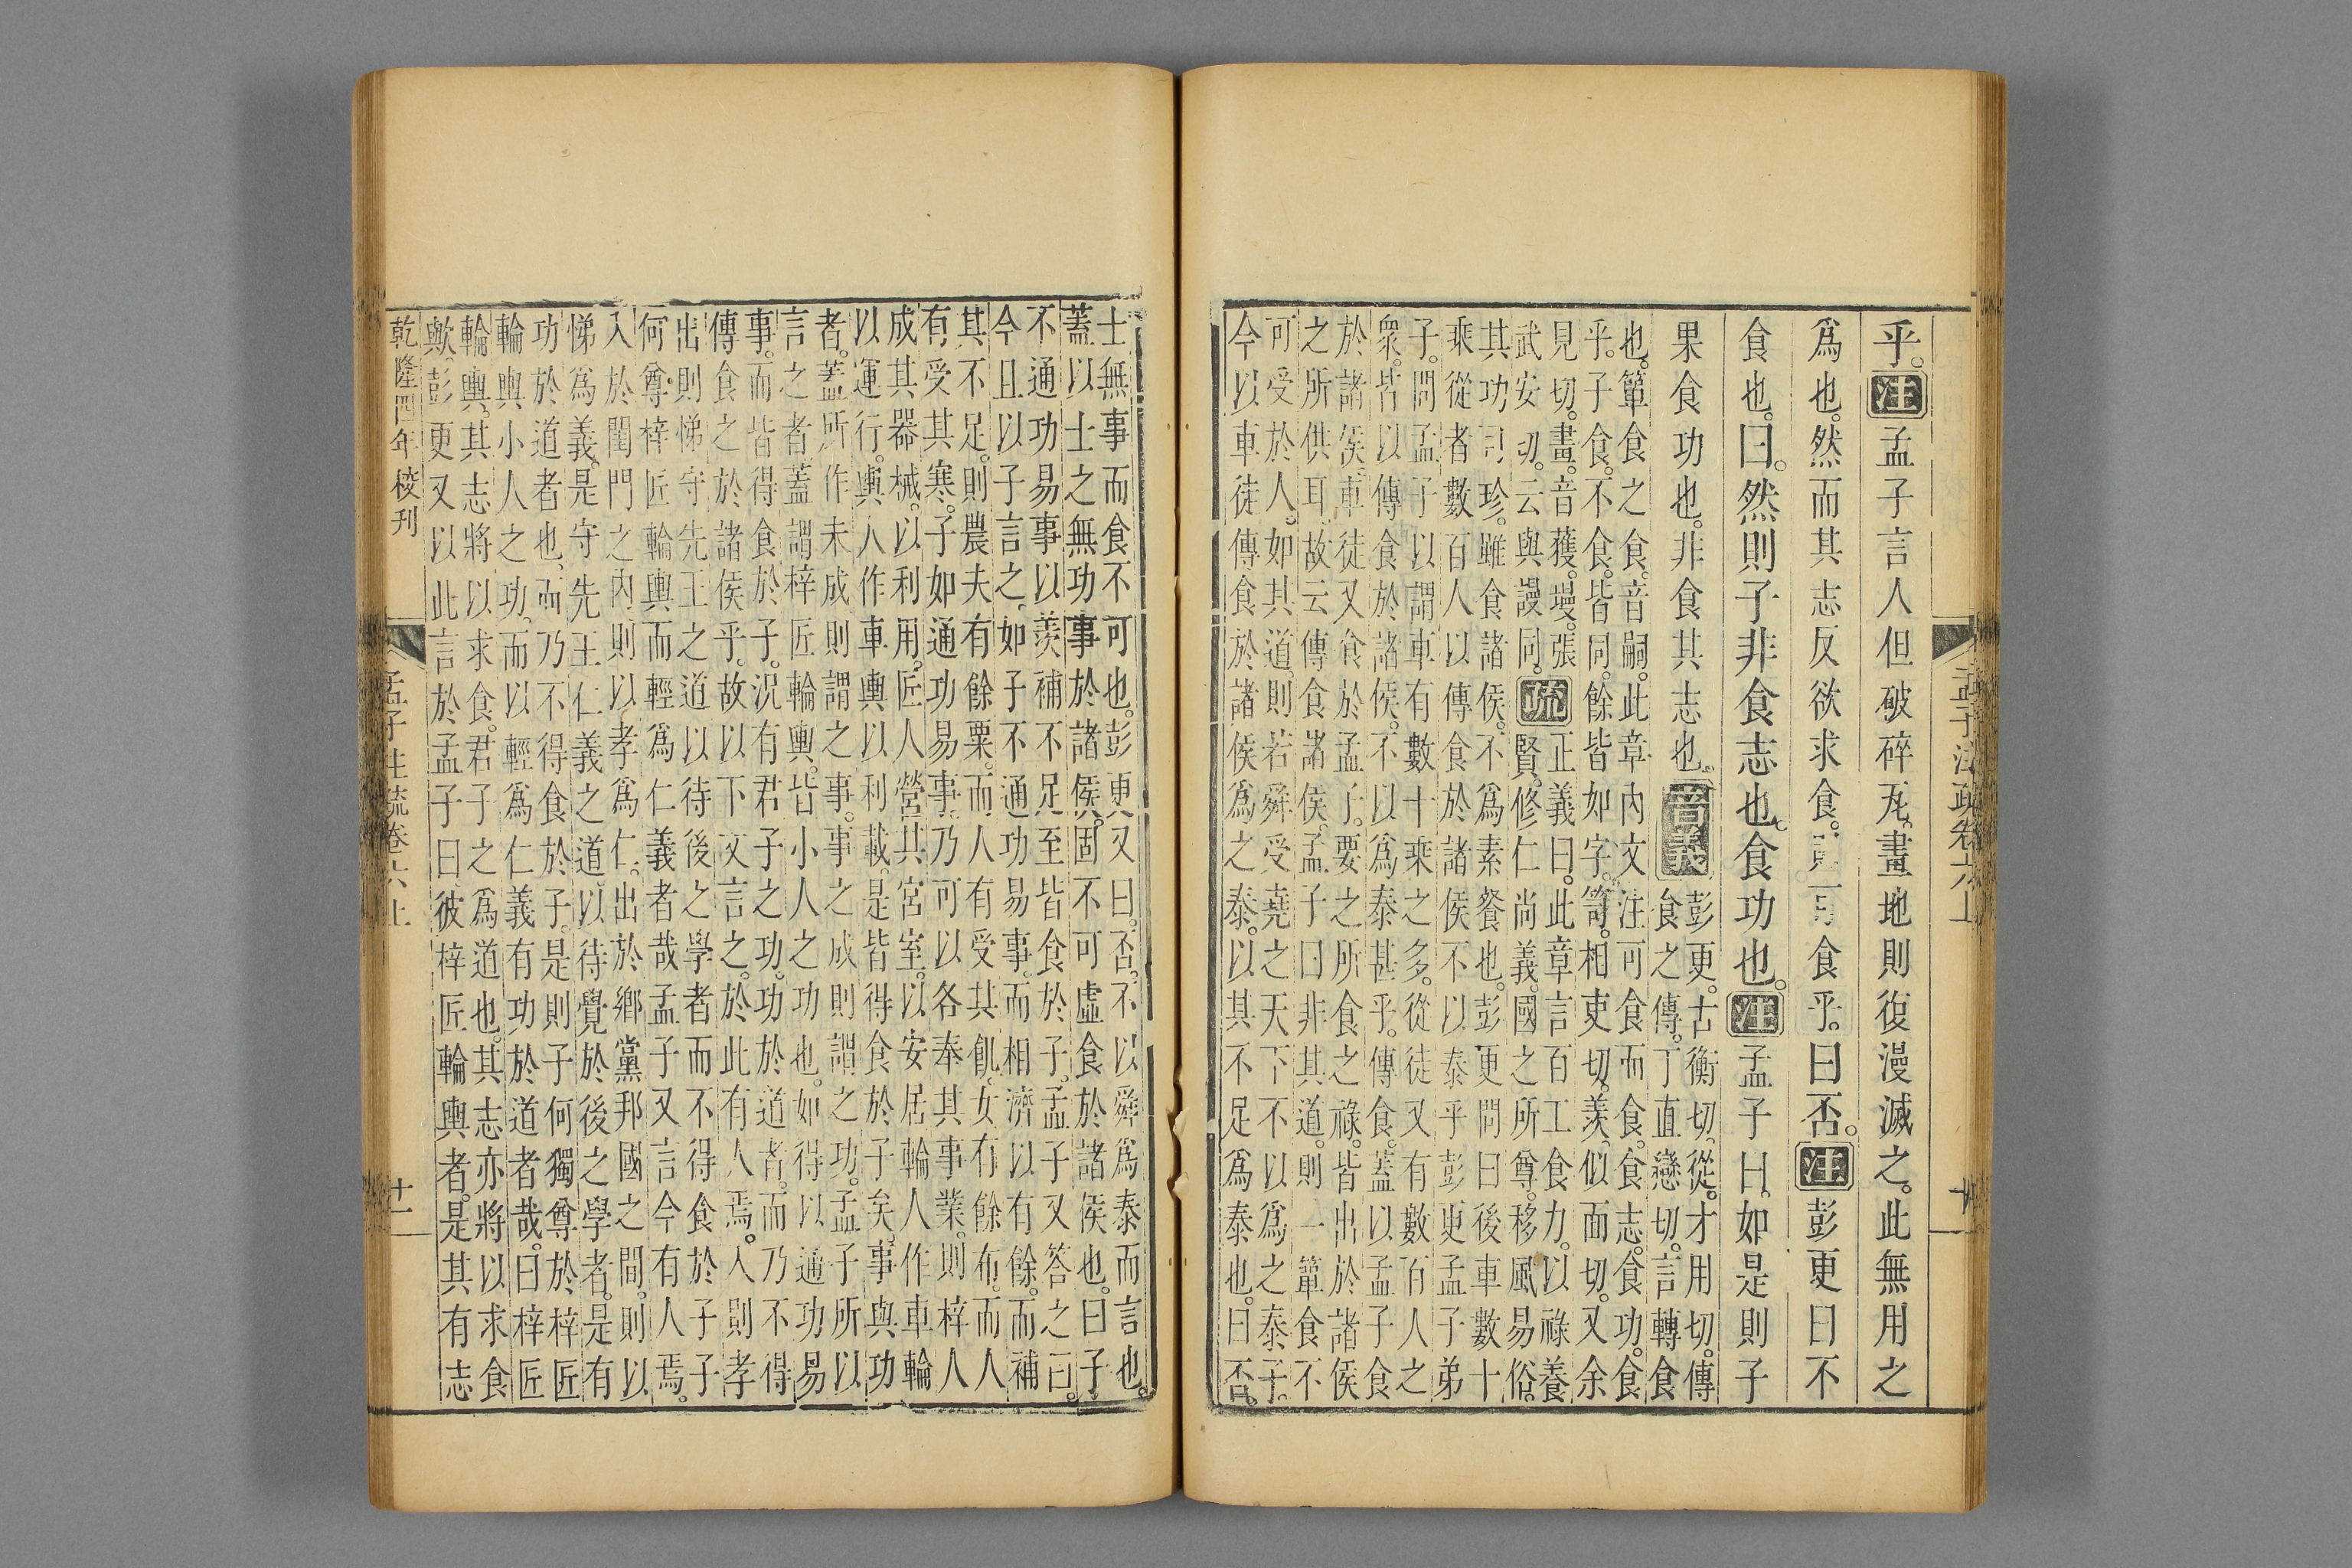 乎。注孟子言人但破碎瓦。畫地則復漫滅之。此無用之
爲也。然而其志反欲求食。食乎。曰否。注彭更曰不
食也。曰。然則子非食志也。食功也。注孟子曰。如是則子
果食功也。非食其志也。音義彭更。古衡切。從。才用切。傳
食之傳。丁直戀切。言轉食
也。簞食之食。音嗣。此章內文注可食而食。食志。食功。食
乎。子食。不食。皆同。餘皆如字。笥。相吏切。羨。似面切。又余
見切。畫。音獲。墁。張
武安切。云與謾同。疏正義曰。此章言百工食力。以祿養
賢。修仁尚義。國之所尊。移風易俗。
其功可珍。雖食諸侯。不爲素餐也。彭更問曰後車數十
乘從者數百人以傳食於諸侯不以泰乎彭更孟子弟
子。問孟子以謂車有數十乘之多。從徒又有數百人之
衆。皆以傳食於諸侯。不以爲泰甚乎。傳食。蓋以孟子食
於諸侯。車徒又食於孟子。要之所食之祿。皆出於諸侯
之所供耳。故云傳食諸侯。孟子曰非其道。則一簞食不
可受於人。如其道。則若舜受堯之天下不以爲之泰。子
今以車徒傳食於諸侯爲之泰。以其不足爲泰也。曰否。
孟子注疏卷六上
士無事而食不可也。彭更又曰。否。不以舜爲泰而言也。
蓋以士之無功事於諸侯。固不可虛食於諸侯也。曰子
不通功易事以羨補不足至皆食於子。孟子又答之曰。
今且以子言之。如子不通功易事。而相濟以有餘。而補
其不足。則農夫有餘粟。而人有受其飢。女有餘布。而人
有受其寒。子如通功易事。乃可以各奉其事業。則梓人
成其器械。以利用。匠人營其宮室。以安居輪人作車輪
以運行。輿人作車輿以利載。是皆得食於子矣。事與功
者。蓋所作未成則謂之事。事之成則謂之功。孟子所以
言之者。蓋謂梓匠輪輿。皆小人之功也。如得以通功易
事。而皆得食於子。況有君子之功。功於道者。而乃不得
傳食之於諸侯乎。故以下文言之。於此有人焉。入則孝
出則悌守先王之道以待後之學者而不得食於子子
何尊梓匠輪輿而輕爲仁義者哉孟子又言今有人焉。
入於閨門之內則以孝爲仁。出於鄉黨邦國之間。則以
悌爲義。是守先王仁義之道。以待覺於後之學者。是有
功於道者也。而乃不得食於子。是則子何獨尊於梓匠
輪輿小人之功。而以輕爲仁義有功於道者哉。曰梓匠
輪輿。其志將以求食。君子之爲道也。其志亦將以求食
歟。彭更又以此言於孟子曰。彼梓匠輪輿者。是其有志
乾隆四年校刊
孟子注疏卷六上
十一